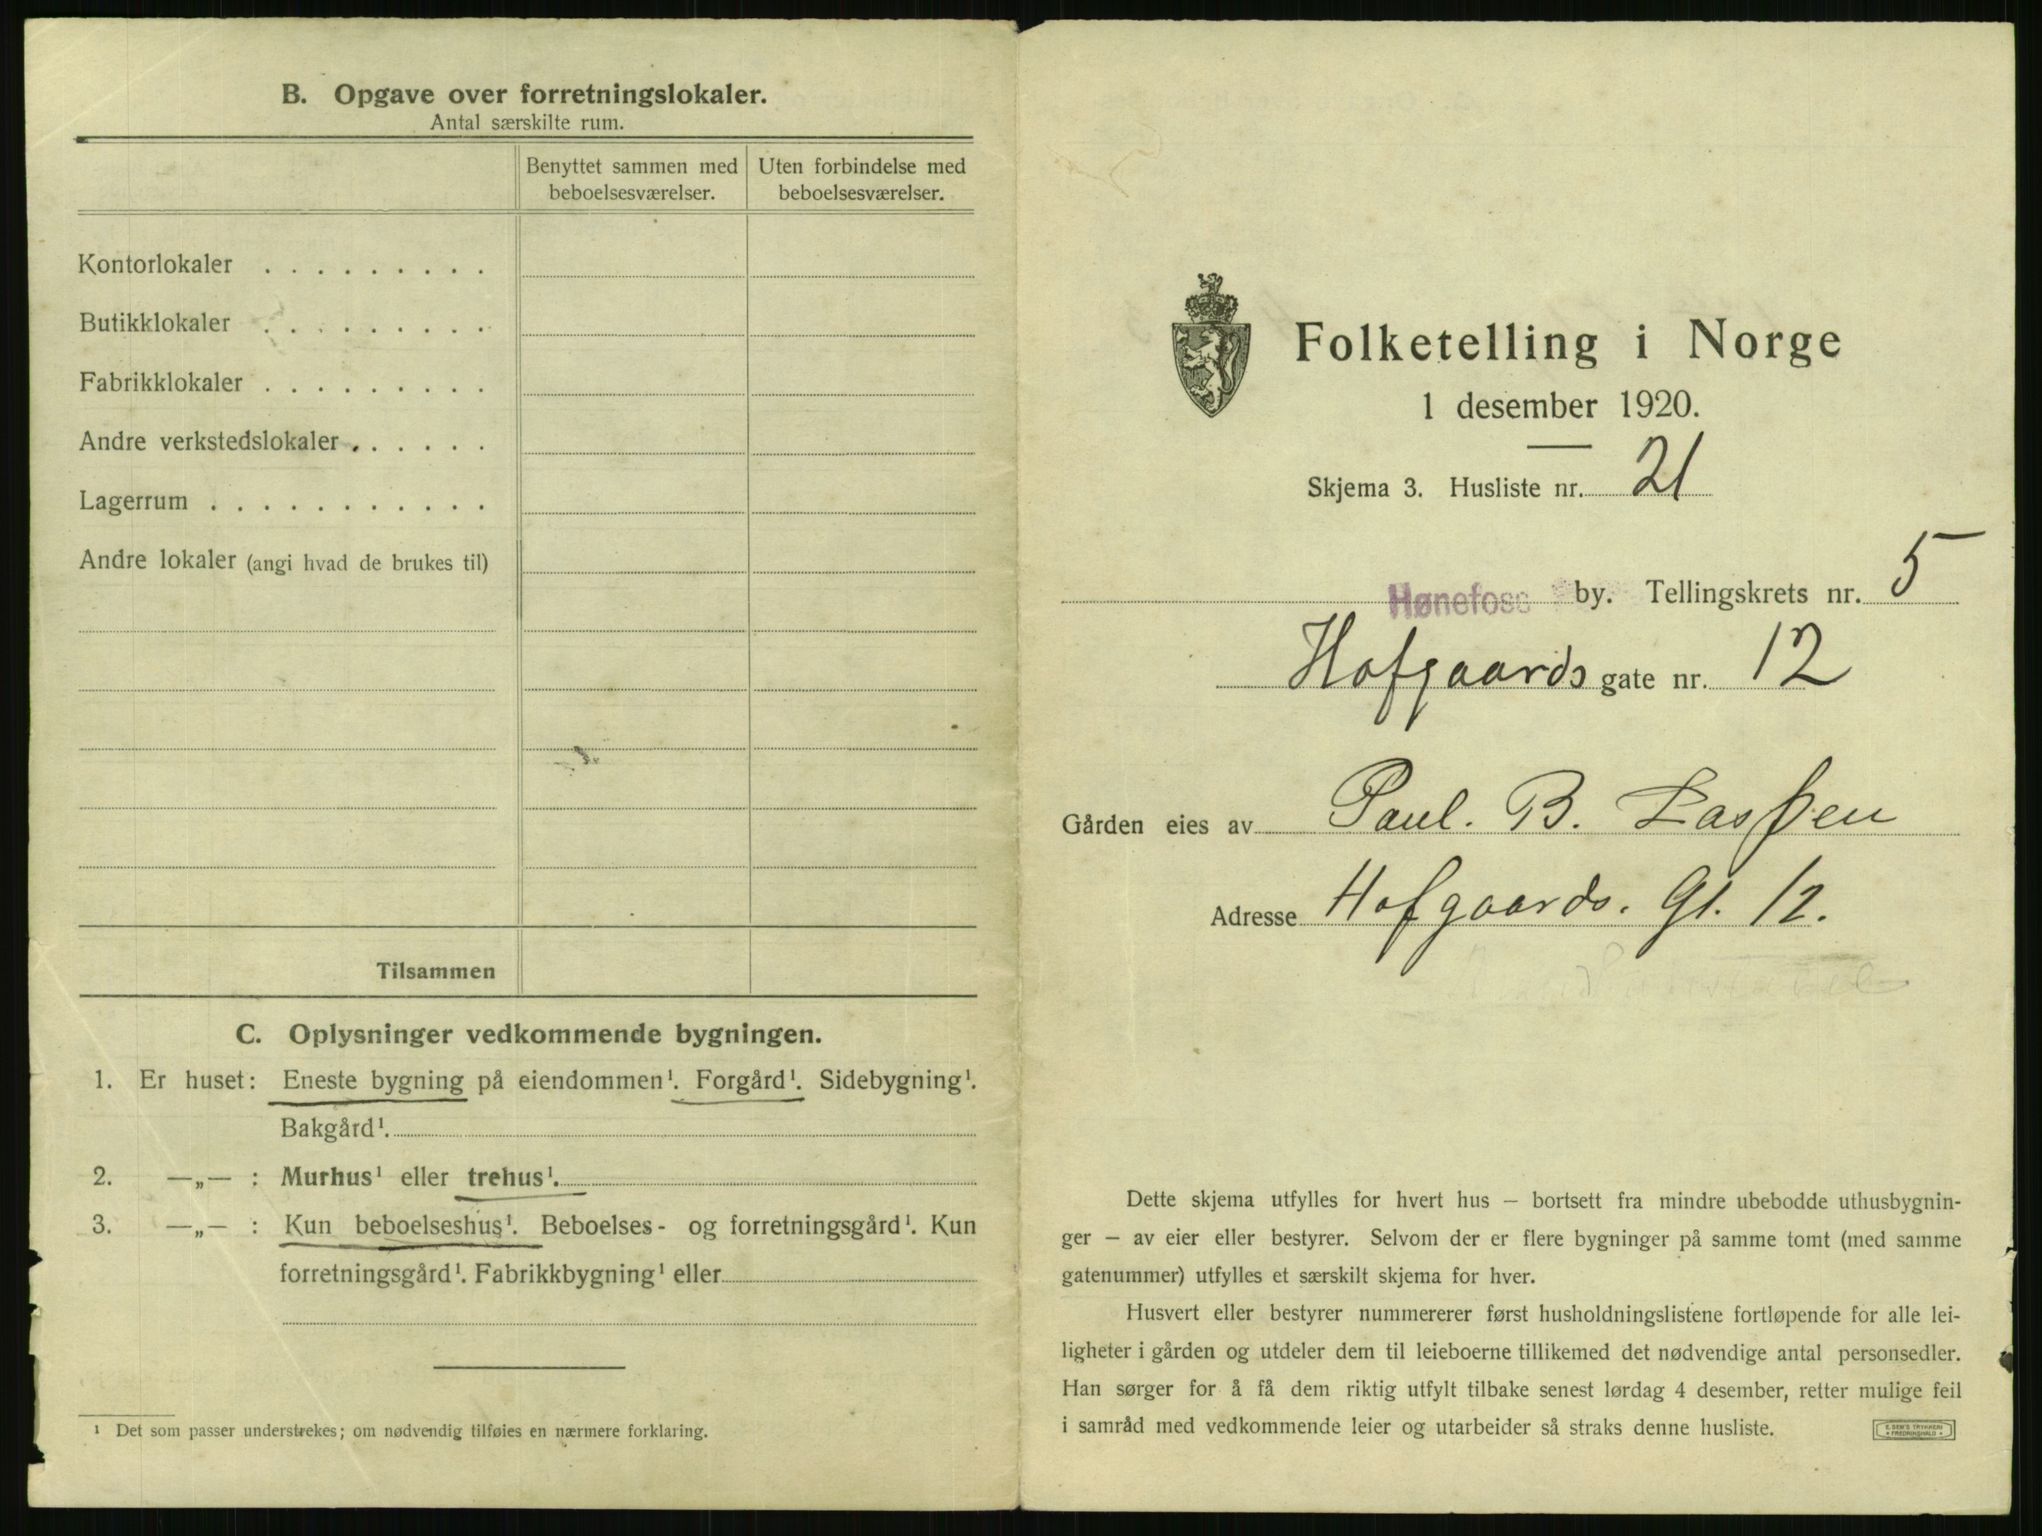 B. Opgave over forretningslokaler.
Antal særskilte rum.
Benyttet sammen med beboelsesværelser.
Uten forbindelse med beboelsesværelser.
Kontorlokaler . . . . . . . . .
Butikklokaler . . . . . . . . .
Fabrikklokaler . . . . . . . . .
Andre verkstedslokaler . . . . . .
Lagerrum . . . . . . . . . . .
Andre lokaler (angi hvad de brukes til)
Tilsammen
C. Oplysninger vedkommende bygningen.
1. Er huset: Eneste bygning på eiendommen¹. Forgård¹. Sidebygning¹.
Bakgård¹.
2. —„— : Murhus¹ eller trehus¹.
3. —„— : Kun beboelseshus¹. Beboelses- og forretningsgård¹. Kun
forretningsgård¹. Fabrikkbygning¹ eller
¹ Det som passer understrekes; om nødvendig tilføies en nærmere forklaring.
Folketelling i Norge
1 desember 1920.
Skjema 3. Husliste nr. 21
Hønefoss by. Tellingskrets nr. 5
Hofgaards gate nr. 12
Gården eies av Paul. B. Lassen
Adresse Hofgaards. Gt. 12.
Dette skjema utfylles for hvert hus — bortsett fra mindre ubebodde uthusbygnin-
ger — av eier eller bestyrer. Selvom der er flere bygninger på samme tomt (med samme
gatenummer) utfylles et særskilt skjema for hver.
Husvert eller bestyrer nummererer først husholdningslistene fortløpende for alle lei-
ligheter i gården og utdeler dem til leieboerne tillikemed det nødvendige antal personsedler.
Han sørger for å få dem riktig utfylt tilbake senest lørdag 4 desember, retter mulige feil
i samråd med vedkommende leier og utarbeider så straks denne husliste.
E. SEM'S TRYKKERI
FREDRIKSHALD